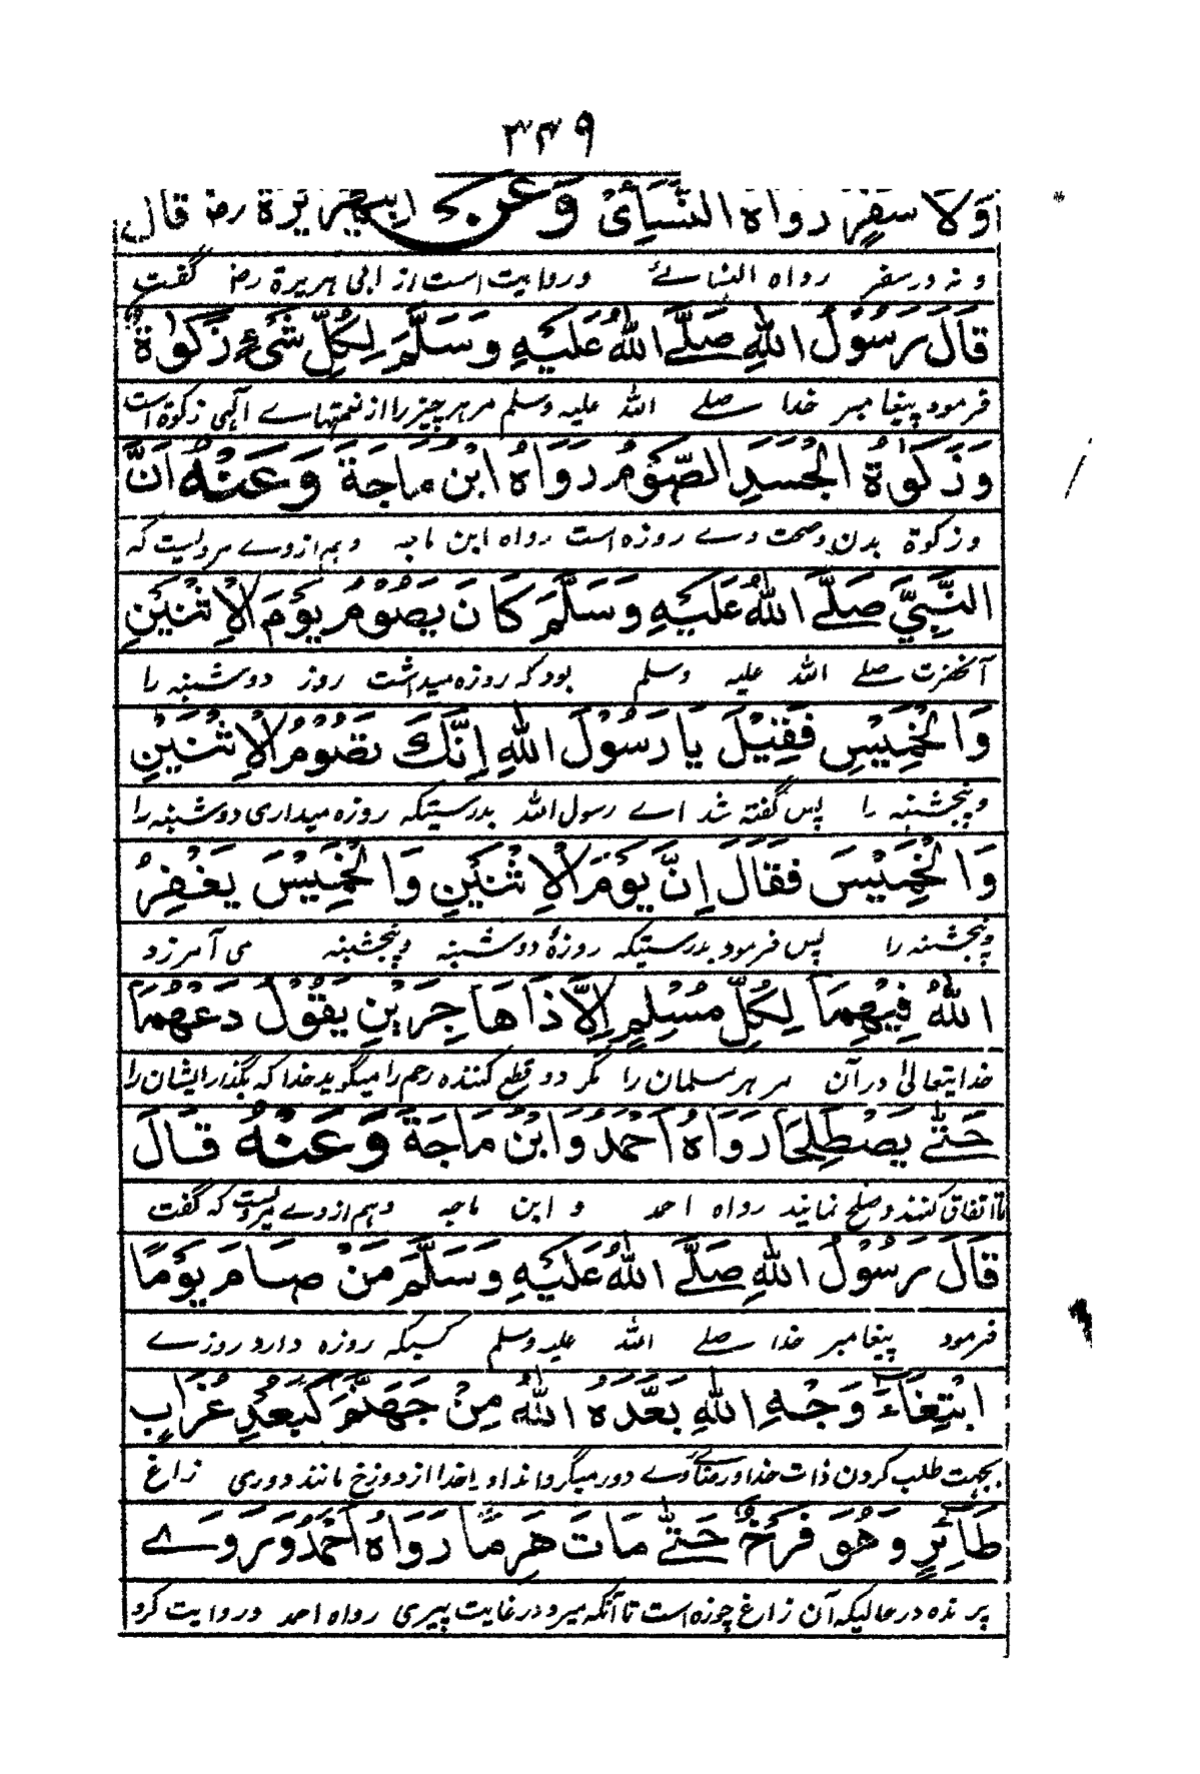 ۳۴۹
وَلَا سَفَرٍ رواه النَّسَائِیُ وَعَنْ ابیھریرة رض قال
و نه در سفر رواه النسائے وروایت است از ابی هریرة رض گفت
قَالَ رَسُوْلُ اللهِ صَلَّے اللهُ عَلَیْهِ وَسَلَّمَ لِکُلِّ شَیْءٍ زَکٰوةٌ
فرمود پیغامبر خدا صلے الله علیه وسلم مر هر چیز را از نعمتهاے آلهی زکوة است
وَزَکٰوةُ الْجَسَدِ الصَّوْمُ رَوَاهُ ابْنُ مَاجَةَ وَعَنْهُ اَنَّ
و زکوة بدن وصحت وے روزه است رواه ابن ماجه وهم از وے مرویست که
النَّبِیَّ صَلَّے اللهُ عَلَیْهِ وَسَلَّمَ کَانَ یَصُوْمُ یَوْمَ الْاِثْنَیْنِ
آنحضرت صلے الله علیه وسلم بود که روزه میداشت روز دوشنبه را
وَالْخَمِیْسِ فَقِیْلَ یَا رَسُوْلَ اللهِ اِنَّكَ تَصُوْمُ الْاِثْنَیْنِ
و پنجشنبه را پس گفته شد اے رسول الله بدرستیکه روزه میداری دوشنبه را
وَالْخَمِیْسَ فَقَالَ اِنَّ یَوْمَ الْاِثْنَیْنِ وَالْخَمِیْسَ یَغْفِرُ
و پنجشنبه را پس فرمود بدرستیکه روزهٔ دوشنبه و پنجشنبه می آمرزد
اللهُ فِیْهِمَا لِکُلِّ مُسْلِمٍ اِلَّا ذَا هَاجِرَیْنِ یَقُوْلُ دَعْهُمَا
خدایتعالیٰ در آن مر هر مسلمان را مگر دو قطع کننده رحم را میگوید خدا که بگذار ایشان را
حَتّٰے یَصْطَلِحَا رَوَاهُ اَحْمَدُ وَابْنُ مَاجَةَ وَعَنْهُ قَالَ
تا اتفاق کنند و صلح نمایند رواه احمد و ابن ماجه وهم از وے مرویست که گفت
قَالَ رَسُوْلُ اللهِ صَلَّے اللهُ عَلَیْهِ وَسَلَّمَ مَنْ صَامَ یَوْمًا
فرمود پیغامبر خدا صلے الله علیه وسلم کسیکه روزه دارد روزے
ابْتِغَاءَ وَجْهِ اللهِ بَعَّدَهُ اللهُ مِنْ جَهَنَّمَ کَبُعْدِ غُرَابٍ
بجهت طلب کردن ذات خدا ورضائے وے دور میگرداند او را خدا از دوزخ مانند دوری زاغ
طَائِرٍ وَهُوَ فَرْخٌ حَتّٰے مَاتَ هَرِمًا رَوَاهُ اَحْمَدُ وَرَوَے
پرنده در حالیکه آن زاغ چوزه است تا آنکه میرد در غایت پیری رواه احمد و روایت کرد